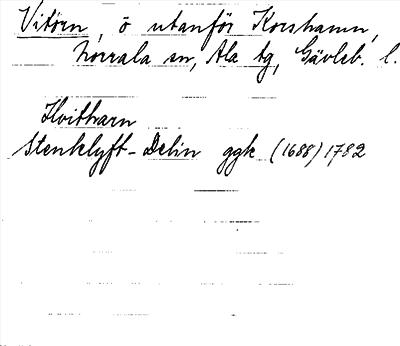 Vitörn, ö utanför Korshamn,
Norrala sn, Ala tg, Gävleb. l.
Hvitharn
Stenklyft-Delin ggk (1688) 1782